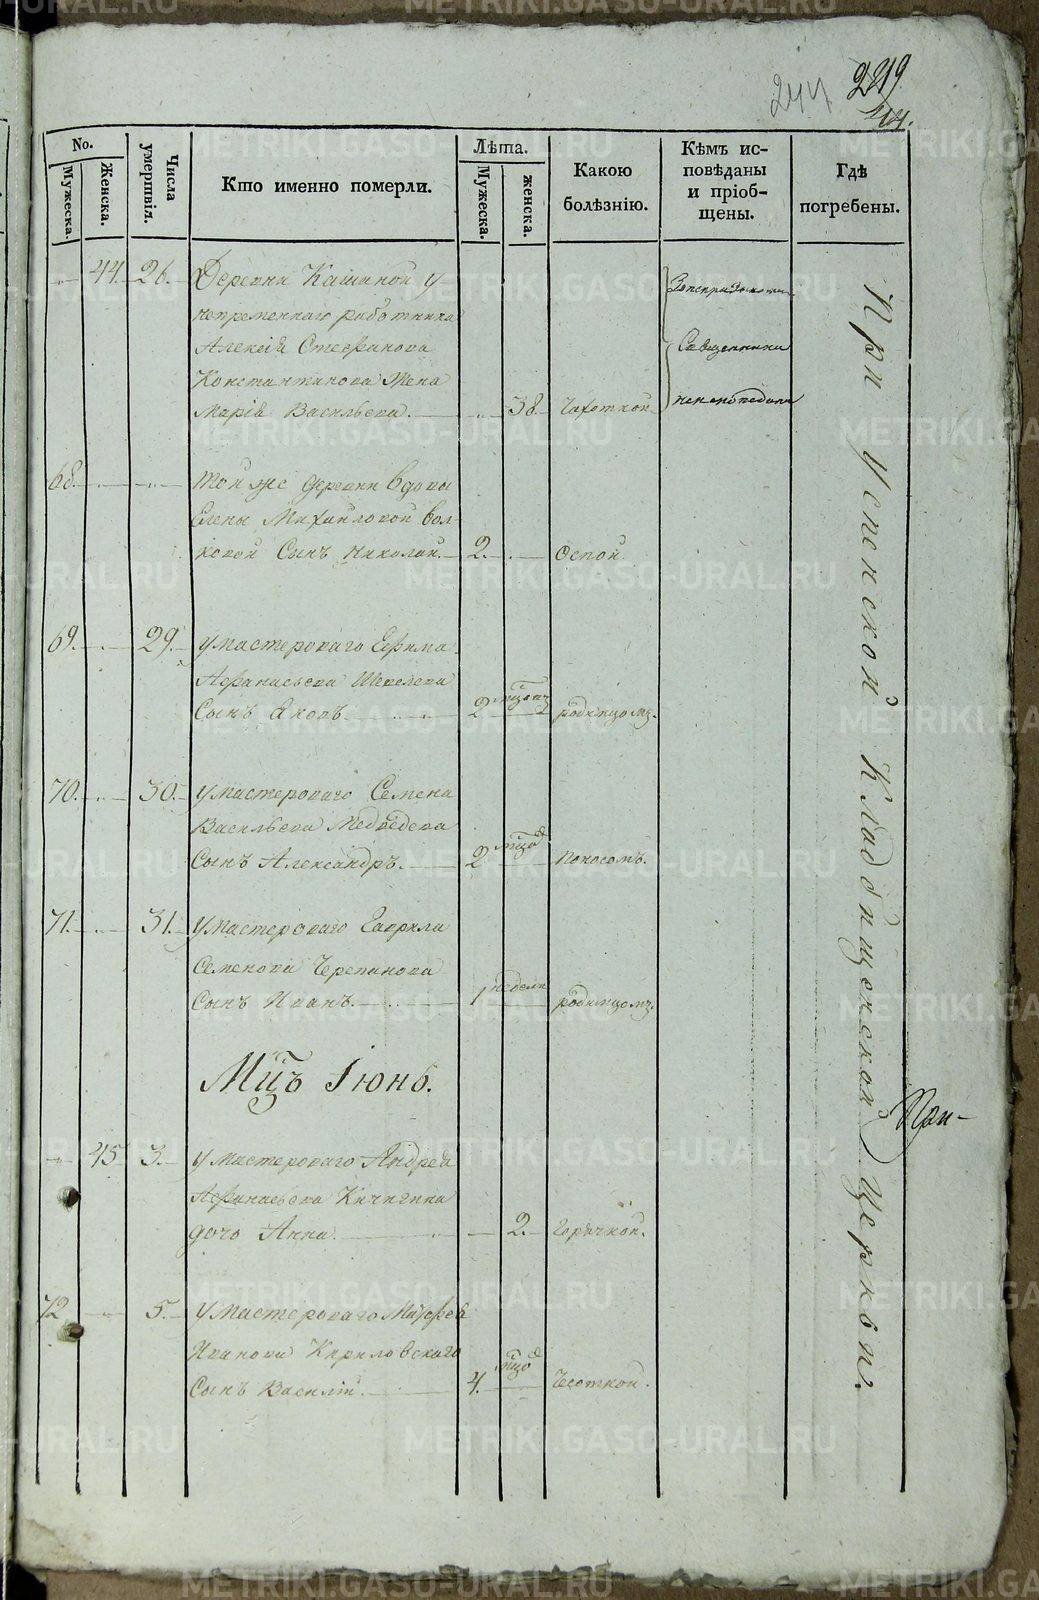 244
249
No.
Мужеска.
Женска.
Числа умертвія.
Кто именно померли.
Лѣта.
Мужеска.
женска.
Какою болѣзнію.
Кѣмъ ис-
повѣданы
и пріоб-
щены.
Гдѣ погребены.
44. 26. Деревни Кашиной у
непременнаго работника
Алексія Стефанова
Константинова Жена
Марія Васильева. 38. Чахоткой
Священники
68. той же деревни вдовы
Елены Михайловой вол-
ковой Сынъ Николай. 2. Оспой
69. 29. у мастероваго Ефима
Афанасьева Шевелева
Сынъ Яковъ 2 родимцомъ.
70. 30. у мастероваго Семена
Васильева Медвѣдева
Сынъ Александръ. 2 мцов Поносомъ.
71. 31. у мастероваго Гаврила
Семенова Черепанова
Сынъ Иванъ. 1 недели родимцомъ.
Мцъ Іюнь.
45 3. у мастероваго Андрея
Афанасьева Кичигина
дочь Анна 2. Горячкой.
72 5. у мастероваго Матфея
Иванова Кириловскаго
Сынъ Василій 4.
При Успенской Кладбищенской Церкви.
При-
METRIKI.GASO-URAL.RU